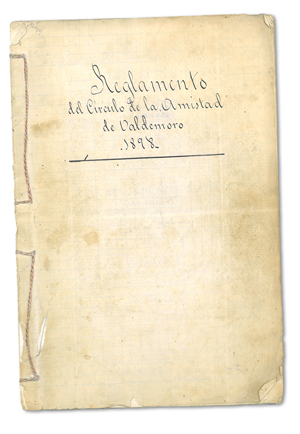 Reglamento
del Circulo de la Amistad
de Valdemoro
.1898.